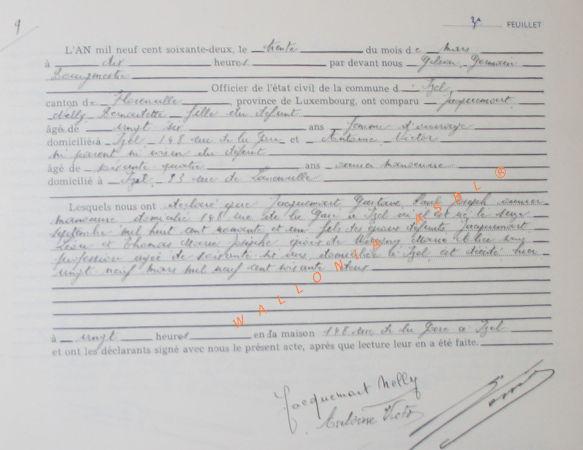 9
3e FEUILLET
L'AN mil neuf cent soixante-deux, le trente du mois de mars
à dix heures par devant nous Gilson, Germain
Bourgmestre
Officier de l'état civil de la commune d' Izel
canton de Florenville province de Luxembourg, ont comparu Jacquemart,
Nelly Bernadette fille du défunt
âgé de vingt six ans femme d'ouvrage
domicilié à Izel, 148 rue de la Gare et Antoine Victor
ni parent ni voisin du défunt
âgé de soixante quatre ans ancien manoeuvre
domicilié à Izel, 93 rue de
Lesquels nous ont déclaré que Jacquemart, Gustave, Paul Joseph ouvrier
manoeuvre domicilié 148 rue de la Gare à Izel où il est né le seize
septembre mil huit cent nonante et un fils des époux défunts Jacquemart
et Thomas Marie Josephe époux de Marie sans
profession âgée de soixante six ans, domiciliée à Izel est décédé hier
vingt neuf mars mil neuf cent soixante deux
à vingt heures en sa maison 148 rue de la Gare à Izel
et ont les déclarants signé avec nous le présent acte, après que lecture leur en a été faite.
Jacquemart Nelly
Antoine Victor
WALLONIA ASBL ®